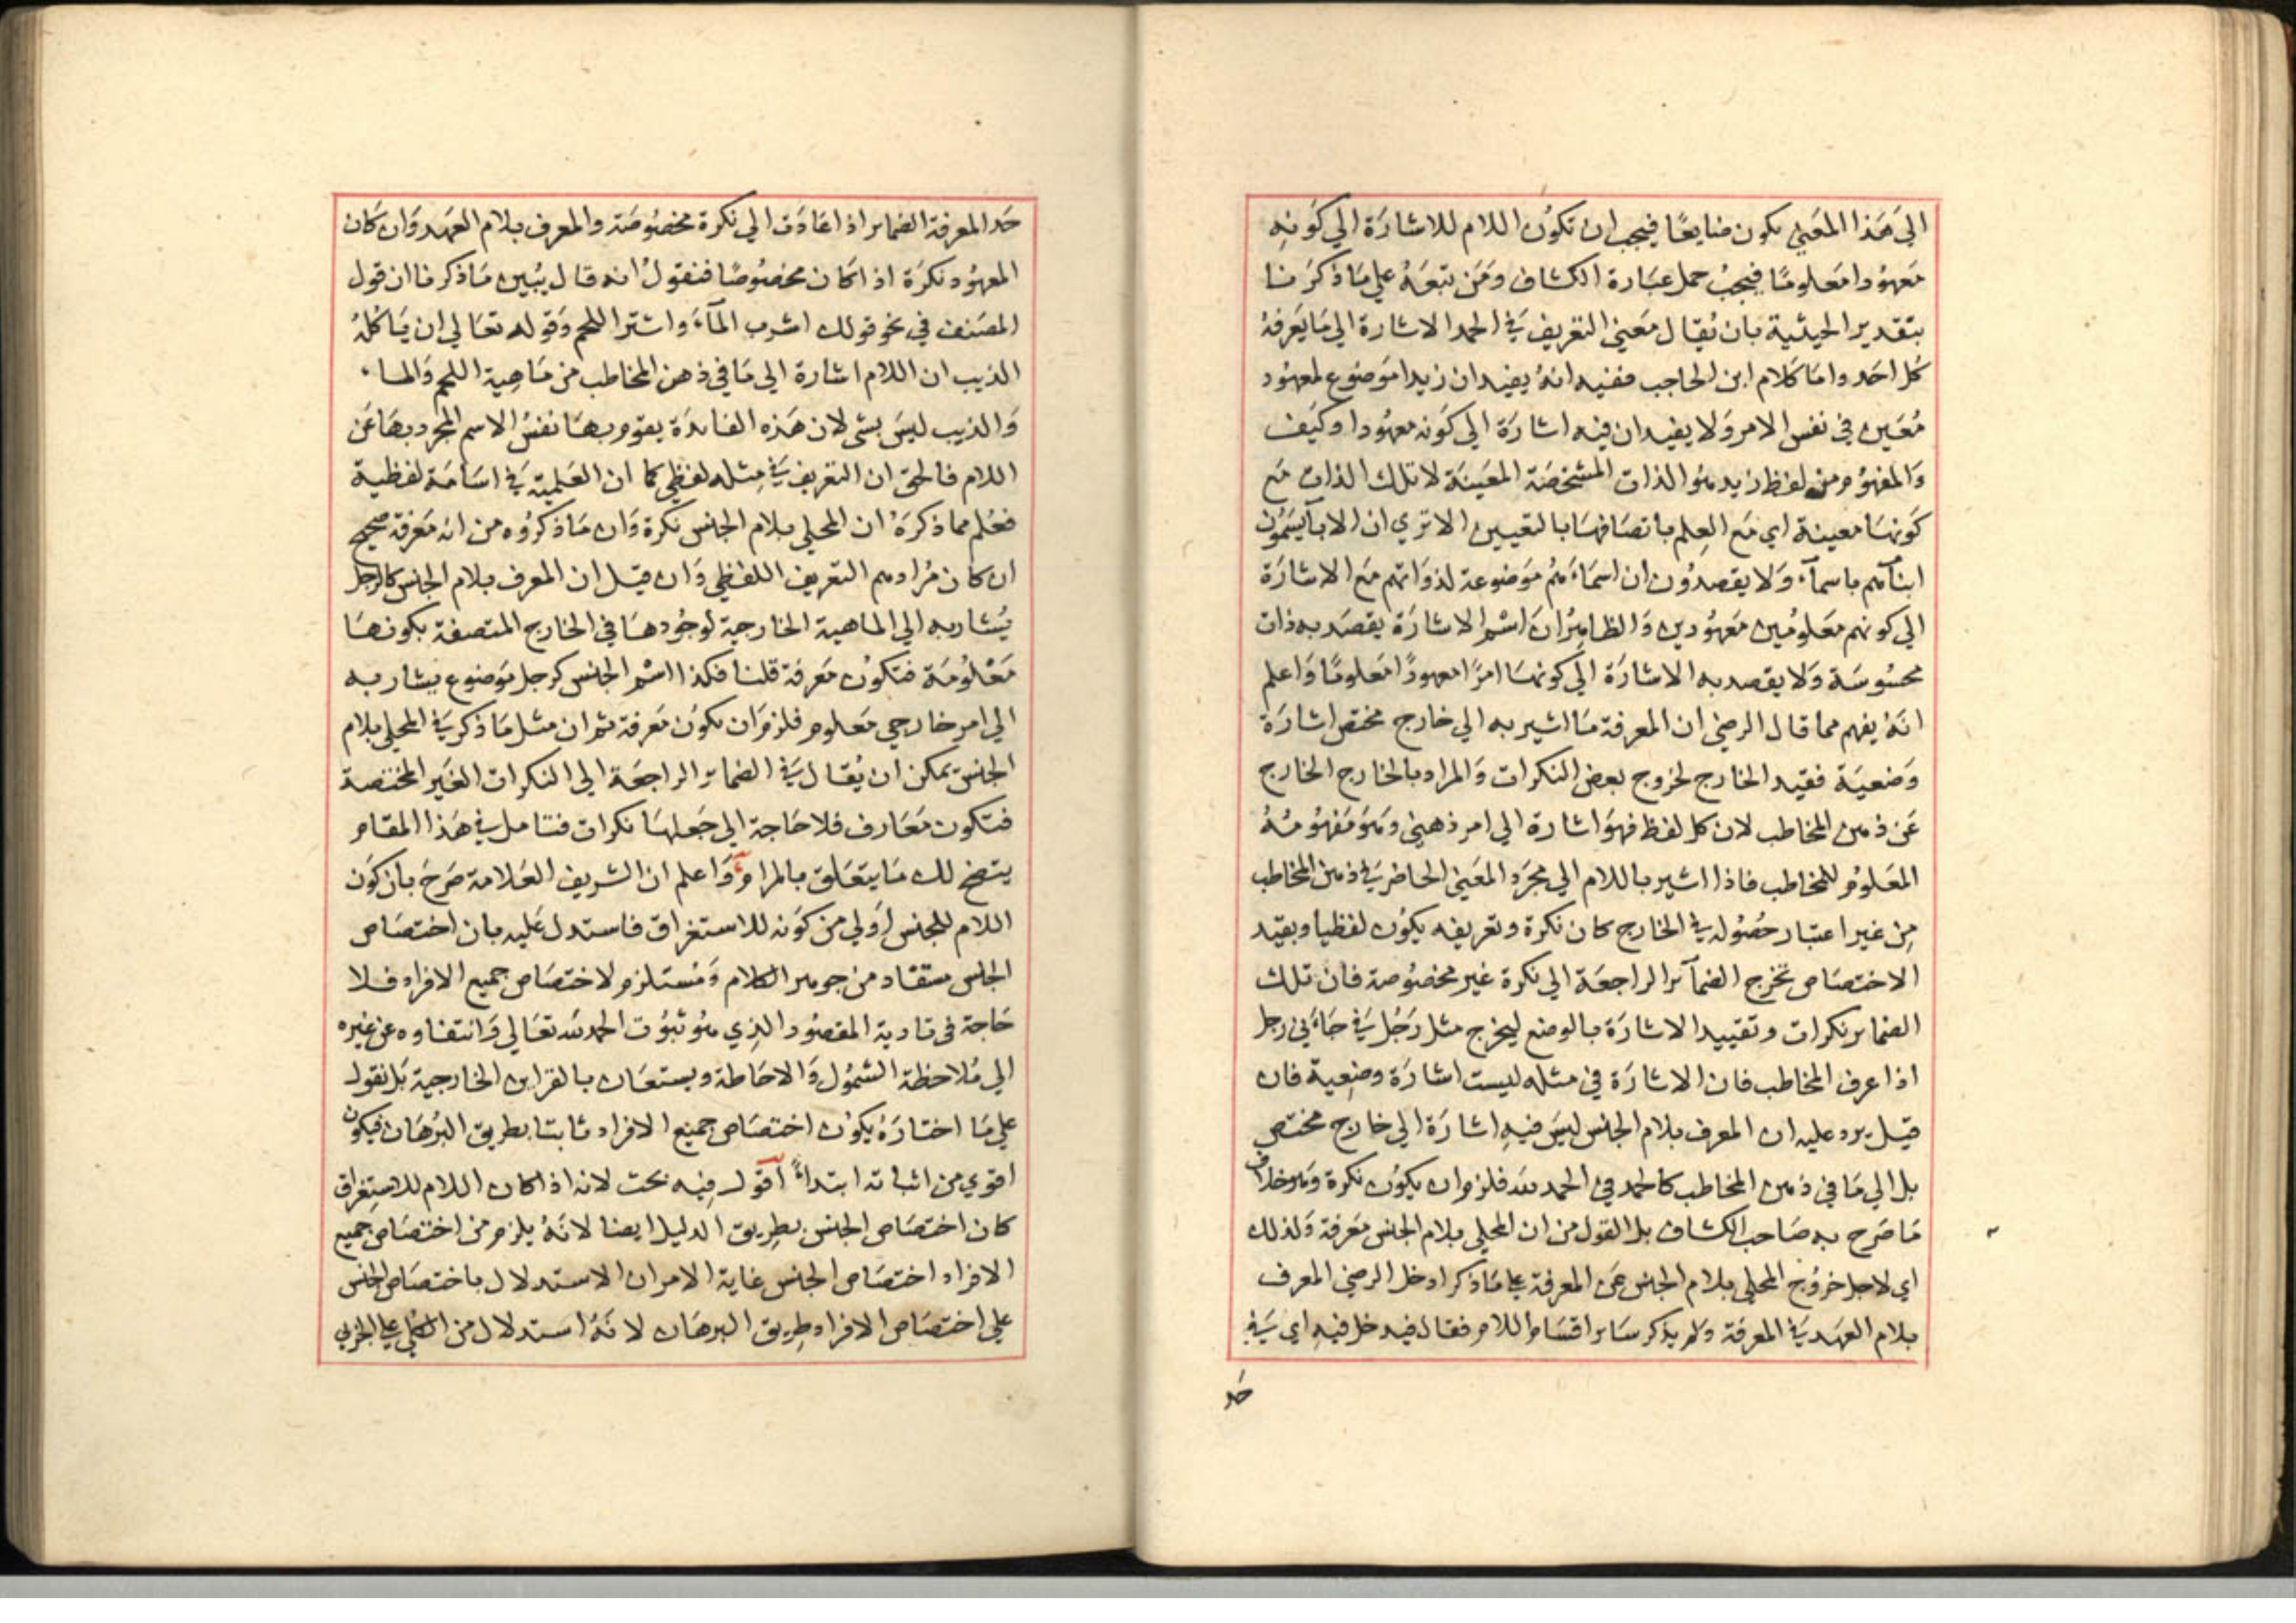 الى هذا المعنى يكون ضايعا فيجب ان تكون اللام للاشارة الي كونه
معهودا معلوما فيجب حمل عبارة الكشاف ومن تبعه علي ما ذكرنا
بتقدير الحيثية بان يقال معني التعريف في الحمد الاشارة الي ما يعرفه
كل احد واما كلام ابن الحاجب ففيه انه يفيد ان زيدا موضوع لمعهود
معين في نفس الامر ولا يفيد ان فيه اشارة الي كونه معهودا وكيف
والمفهوم من لفظ زيد هو الذات المشخصة المعينة لا تلك الذات مع
كونها معينة اي مع العلم باتصافها بالتعيين الا تري ان الابآ يسمون
ابنآهم باسمآء ولا يقصدون ان اسماءهم موضوعة لذواتهم مع الاشارة
الي كونهم معلومين معهودين والظاهر ان اسم الاشارة يقصد به ذات
محسوسة ولا يقصد به الاشارة الي كونها امرا معهودا معلوما واعلم
انه يفهم مما قال الرضي ان المعرفة ما اشير به الي خارج مختص اشارة
وضعية فقيد الخارج لخروج بعض النكرات والمراد بالخارج الخارج
عن ذهن المخاطب لان كل لفظ فهو اشارة الي امر ذهني وهو مفهومه
المعلوم للمخاطب فاذا اشير باللام الي مجرد المعني الحاضر في ذهن المخاطب
من غير اعتبار حصوله في الخارج كان نكرة وتعريفه يكون لفظيا وبقيد
الاختصاص تخرج الضمآئر الراجعة الي نكرة غير مخصوصة فان تلك
الضمائر نكرات وتقييد الاشارة بالوضع ليخرج مثل رجل في جاءني رجل
اذا عرف المخاطب فان الاشارة في مثله ليست اشارة وضعية فان
قيل يرد عليه ان المعرف بلام الجنس ليس فيه اشارة الي خارج مختص
بل الي ما في ذهن المخاطب كالحمد في الحمد لله فلزم ان يكون نكرة وهو خلاف
ما صرح به صاحب الكشاف بل القول من ان المحلي بلام الجنس معرفة ولذلك
اي لاجل خروج المحلي بلام الجنس عن المعرفة علي ما ذكر ادخل الرضي المعرف
بلام العهد في المعرفة ولم يذكر سائر اقسام اللام فقال فيدخل فيه اي في
حد
حد المعرفة الضمائر اذا عادت الي نكرة مخصوصة والمعرف بلام العهد وان كان
المعهود نكرة اذا كان مخصوصا فنقول انه قال يبين ما ذكرنا ان قول
المصنف في نحو قولك اشرب المآء واشتر اللحم وقوله تعالي ان ياكله
الذيب ان اللام اشارة الي ما في ذهن المخاطب من ماهية اللحم والماء
والذيب ليس بشي لان هذه الفائدة يقوم بها نفس الاسم المجرد بها عن
اللام فالحق ان التعريف في مثله لفظي كما ان العلمية في اسامة لفظية
فعلم مما ذكره ان المحلي بلام الجنس نكرة وان ما ذكروه من انه معرفة صحيح
ان كان مرادهم التعريف اللفظي وان قيل ان المعرف بلام الجنس كالرجل
يشار به الي الماهية الخارجية لوجودها في الخارج المتصفة بكونها
معلومة فتكون معرفة قلنا فكذا اسم الجنس كرجل موضوع يشار به
الي امر خارجي معلوم فلزم ان يكون معرفة ثم ان مثل ما ذكر في المحلي بلام
الجنس يمكن ان يقال في الضمائر الراجعة الي النكرات الغير المختصة
فتكون معارف فلا حاجة الي جعلها نكرات فتامل في هذا المقام
يتضح لك ما يتعلق بالمرام واعلم ان الشريف العلامة صرح بان كون
اللام للجنس اولي من كونه للاستغراق فاستدل عليه بان اختصاص
الجنس مستفاد من جوهر الكلام ومستلزم لاختصاص جميع الافراد فلا
حاجة في تادية المقصود الذي هو ثبوت الحمد لله تعالي وانتفاوه عن غيره
الي ملاحظة الشمول والاحاطة ويستعان بالقراين الخارجية بل نقول
علي ما اختاره يكون اختصاص جميع الافراد ثابتا بطريق البرهان فيكون
اقوي من اثباته ابتداءً اقول فيه بحث لانه اذا كان اللام للاستغراق
كان اختصاص الجنس بطريق الدليل ايضا لانه يلزم من اختصاص جميع
الافراد اختصاص الجنس غاية الامر ان الاستدلال باختصاص الجنس
علي اختصاص الافراد طريق البرهان لانه استدلال من الكلي علي الجزيي